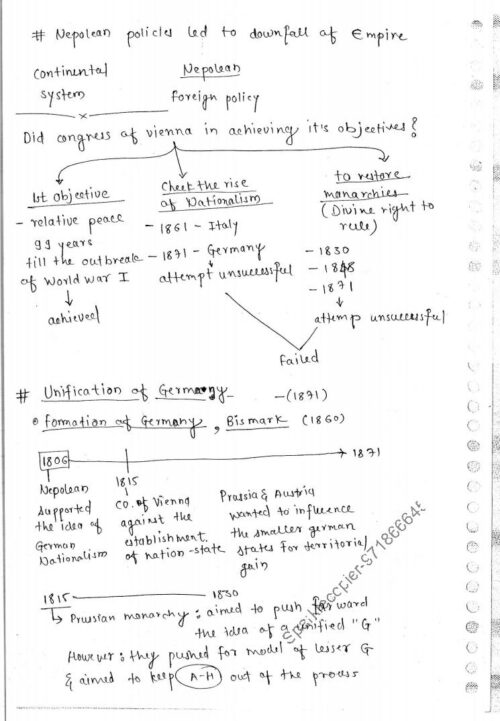 # Nepolean policies led to downfall of Empire
Continental
system
Nepolean
Foreign policy
Did congress of vienna in achieving it's objectives?
1st objective
- relative peace
99 years
till the outbreak
of World War I
achieved
Check the rise
of Nationalism
- 1861 - Italy
- 1871 - Germany
attempt unsuccessful
to restore
monarchies
(Divine right to
rule)
- 1830
- 1848
- 1871
attemp unsuccessful
Failed
# Unification of Germany - (1871)
Formation of Germany, Bismark (1860)
1806
1815
1871
Nepolean
supported
the idea of
German
Nationalism
co. of Vienna
against the
establishment
of nation-state
Prussia & Austria
wanted to influence
the smaller german
states for territorial
gain
1815 1830
Prussian monarchy: aimed to push forward
the idea of a unified "G"
However: they pushed for model of lesser G
& aimed to keep A-H out of the process